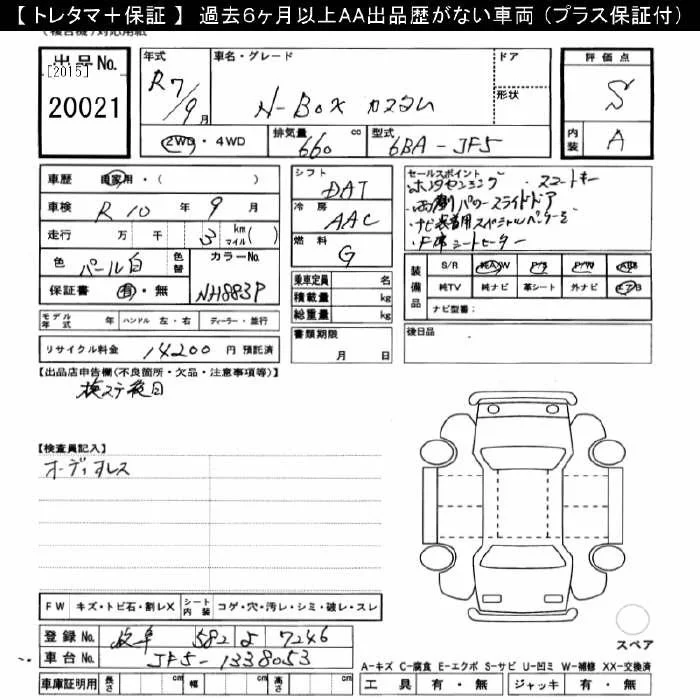 【 トレタマ＋保証 】 過去６ヶ月以上ＡＡ出品歴がない車両（プラス保証付）
出品No. [2015] 20021
年式 R7/9月
車名・グレード N-BOX カスタム
ドア 形状
評価点 S
内装 A
2WD・4WD 排気量 660 cc 型式 6BA-JF5
車歴 自家用・( )
車検 R10年9月
走行 万 千 3 km マイル( )
色 パール白 色替 カラーNo. NH883P
保証書 有・無
シフト DAT
冷房 AAC
燃料 G
乗車定員 名
積載量 kg
総重量 kg
セールスポイント
・ホンダセンシング ・スマートキー
・両側パワースライドドア
・ナビ装着用スペシャルパッケージ
・F席シートヒーター
装備品 S/R 純A/W P/S P/W ABS
純TV 純ナビ 革シート 外ナビ エアB
ナビ型番：
モデル年式 年 ハンドル 左・右 ディーラー・並行
書類期限 月 日
後日品
リサイクル料金 14200 円 預託済
【出品店申告欄(不良箇所・欠品・注意事項等)】
検ステ後日
【検査員記入】
オーディオレス
FW キズ・トビ石・割レX シート内装 コゲ・穴・汚レ・シミ・破レ・スレ
登録No. 岐阜 582 よ 7246
車台No. JF5-1338053
スペア
A-キズ C-腐食 E-エクボ S-サビ U-凹ミ W-補修 XX-交換済
車庫証明用 長さ cm 幅 cm 高さ cm 工具 有・無 ジャッキ 有・無